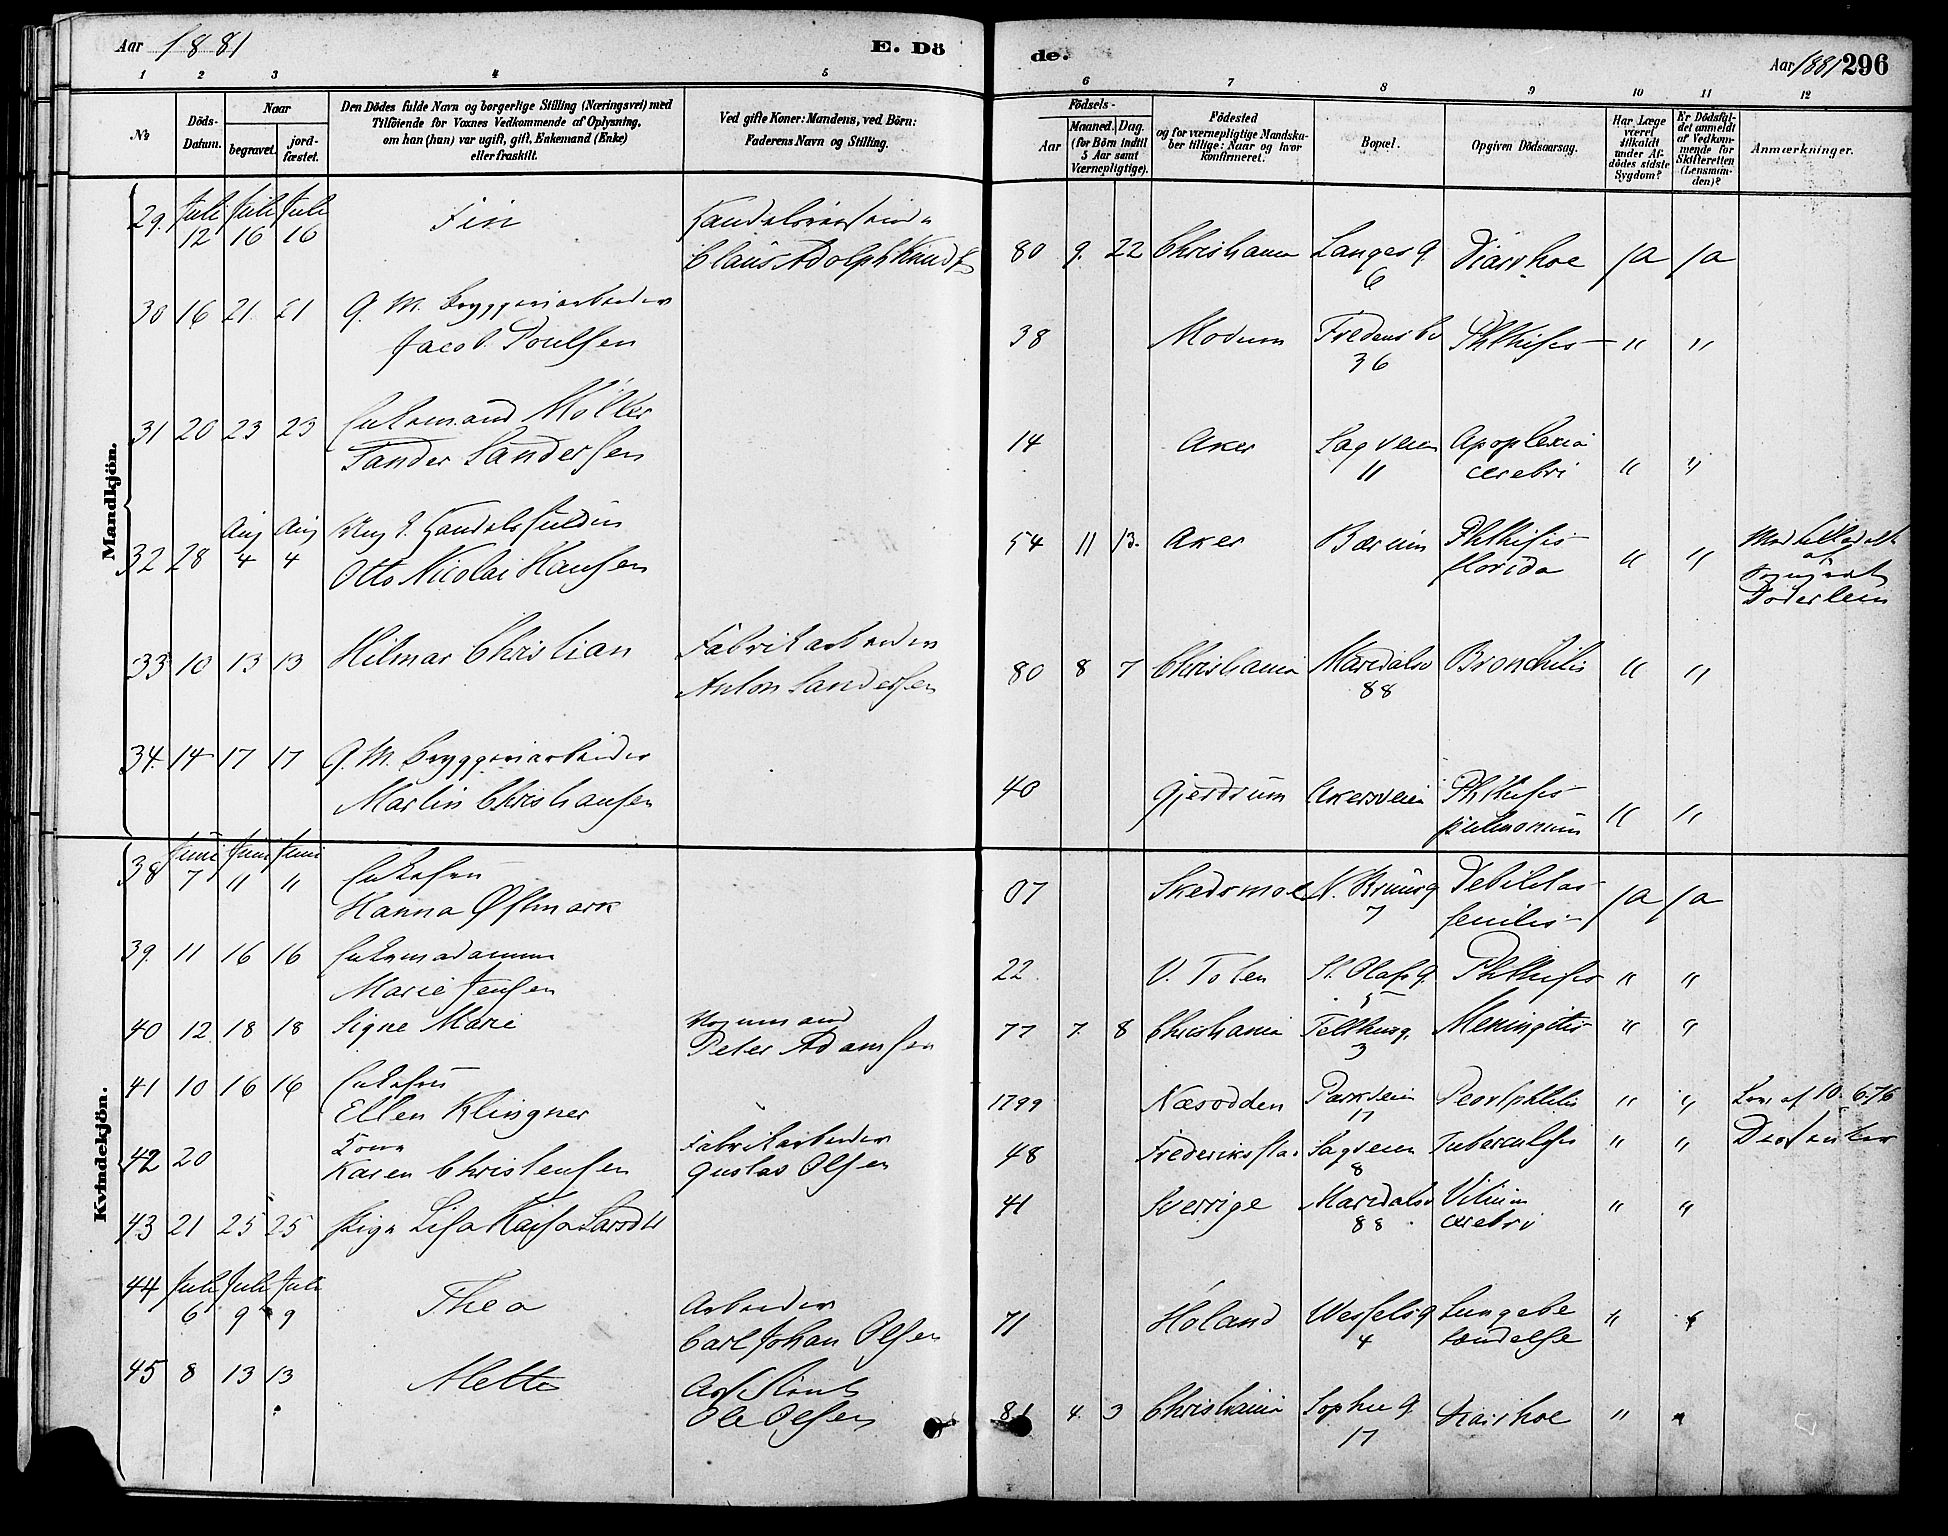 Aar 1881
E. Dö
de.
Aar 1881 296
1 2 3 4 5 6 7 8 9 10 11 12
№
Döds-Datum.
Naar
begravet.
jord-fæstet.
Den Dödes fulde Navn og borgerlige Stilling (Næringsvei) med
Tilföiende for Voxnes Vedkommende af Oplysning,
om han (hun) var ugift, gift, Enkemand (Enke)
eller fraskilt.
Ved gifte Koner: Mandens, ved Börn:
Faderens Navn og Stilling.
Födsels-
Aar
Maaned. Dag.
(for Börn indtil
5 Aar samt
Værnepligtige).
Födested
og for værnepligtige Mandska-
ber tillige: Naar og hvor
konfirmeret.
Bopæl.
Opgiven Dödsaarsag.
Har Læge
været
tilkaldt
under Af-
dödes sidste
Sygdom?
Er Dödsfal-
det anmeldt
af Vedkom-
mende for
Skifteretten
(Lensman-
den)?
Anmærkninger.
Mandkjön.
29. Juli 12 Juli 16 Juli 16 Finn
Claus Adolph 80 9. 22 Christiania Langes g. 6 Diarrhoe Ja Ja
30 16 21 21 G. M. Bryggeriarbeider
Jacob Poulsen 38 Modum Fredensb. 36 Phthisis " "
31 20 23 23 Enkemand Möller
Sander Sandersen 14 Aker Sagveien 11 Apoplexia cerebri " "
32 28 Aug 4 Aug 4
Otto Nicolai Hansen 54 11 13. Aker Bærum Phthisis florida " "
af
Doderlein
33 10 13 13 Hilmar Christian Fabrikarbeider
Anton Sandersen 80 8 7 Christiania Maridalsv 88 Bronchitis " "
34. 14 17 17 G. M. Bryggeriarbeider
Martin Christiansen 40 Gjerdrum Akersveien Phthisis pulmonum " "
Kvindekjön.
38 Juni 7 Juni 11 Juni 11 Enkefru
Hanna Østmark 07 Skedsmoe N. 7 Debilitas senilis Ja Ja
39. 11 16 16 Enkemadamme
Marie Jensen 22 V. Toten St. Olafs g. 5 Phthisis " "
40 12 18 18 Signe Marie
Peter Adamsen 77 7. 8 Christiania 3 Meningitis " "
41 10 16 16 Enkefru
Ellen Klingner 1799 Næsodden Parkveien 17 " " 10. 6. 76
42 20 Kone
Karen Christensen Fabrikarbeider
Gustav Olsen 48 Frederikstad Sagveien 8 Tuberculosis " "
43 21 25 25 Pige Lisa Kajsa 41 Sverrige Maridalsv 88 Vitium cerebri " "
44 Juli 6 Juli 9 Juli 9 Thea Arbeider
Carl Johan Olsen 71 Høland Wessels g 4 Lungebetændelse " "
45 8 13 13 Mette
Ole Olsen 81 4. 3 Christiania Sophies g. 17 Diarrhoe " "